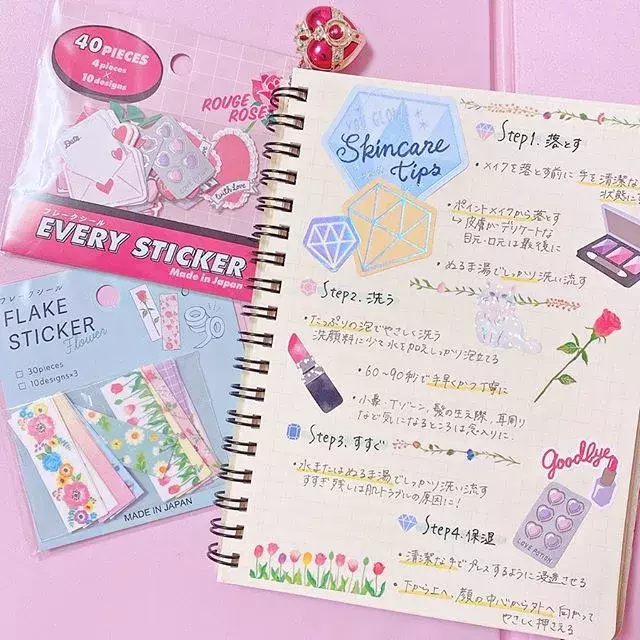 40 PIECES
4 pieces
×
10 designs
ROUGE
ROSE
Dear
with Love
フレークシール
EVERY STICKER
Made in Japan
フレークシール
FLAKE
STICKER
Flower
30pieces
10designs×3
MADE IN JAPAN
YOU GLOW
Skincare
tips
Step1. 落とす
・メイクを落とす前に手を清潔な
状態に
・ポイントメイクから落とす
↳皮膚がデリケートな
目元・口元は最後に
・ぬるま湯でしっかり洗い流す
Step2. 洗う
・たっぷりの泡でやさしく洗う
洗顔料に少々水を加えしっかり泡立てる
・60〜90秒で手早くかつ丁寧に
・小鼻・Tゾーン、髪の生え際、耳周り
など気になるところは念入りに.
Step3. すすぐ
・水またはぬるま湯でしっかり洗い流す
すすぎ残しは肌トラブルの原因に!
Goodbye
LOVE POTION
Step4. 保湿
・清潔な手でプレスするように浸透させる
・下から上へ、顔の中心から外へ向かって
やさしく押さえる